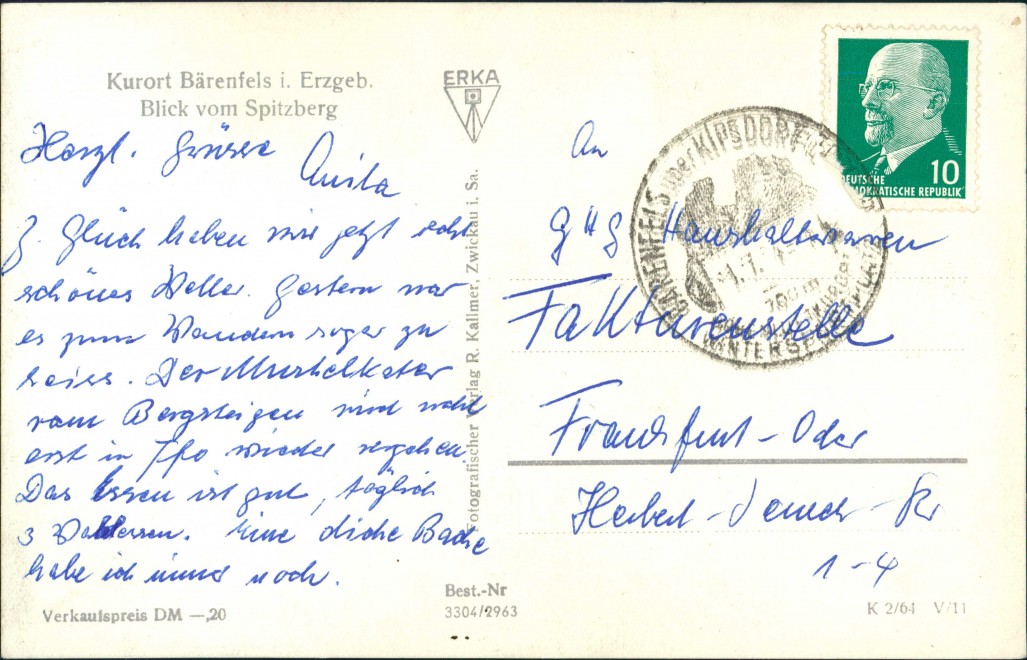 Kurort Bärenfels i. Erzgeb.
Blick vom Spitzberg
ERKA
Herzl. Grüsse
Anita
Z. Glück haben wir jetzt echt
schönes Wetter. Gestern war
es zum Wandern sogar zu
heiss. Der Muskelkater
vom Bergsteigen wird wohl
erst in Ffo wieder vergehen.
Das Essen ist gut, täglich
3 Wahlessen. Eine dicke Backe
habe ich immer noch.
Verkaufspreis DM —,20
Fotografischer Verlag R. Kallmer, Zwickau i. Sa.
Best.-Nr
3304/2963
DEUTSCHE
DEMOKRATISCHE REPUBLIK
10
BÄRENFELS über KIPSDORF
WINTERSPORTPLATZ
An
GHG Haushaltwaren
Fakturenstelle
Frankfurt-Oder
1-4
K 2/64 V/11